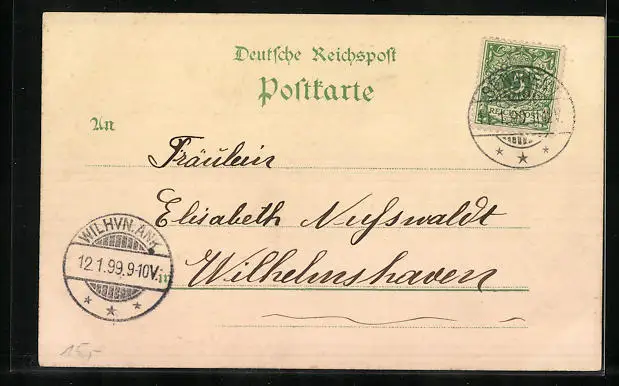 Deutsche Reichspost
Postkarte
An
Fräulein
Elisabeth Nußwaldt
in Wilhelmshaven
WILHVN. ANK.
12.1.99.9-10V.
15,-